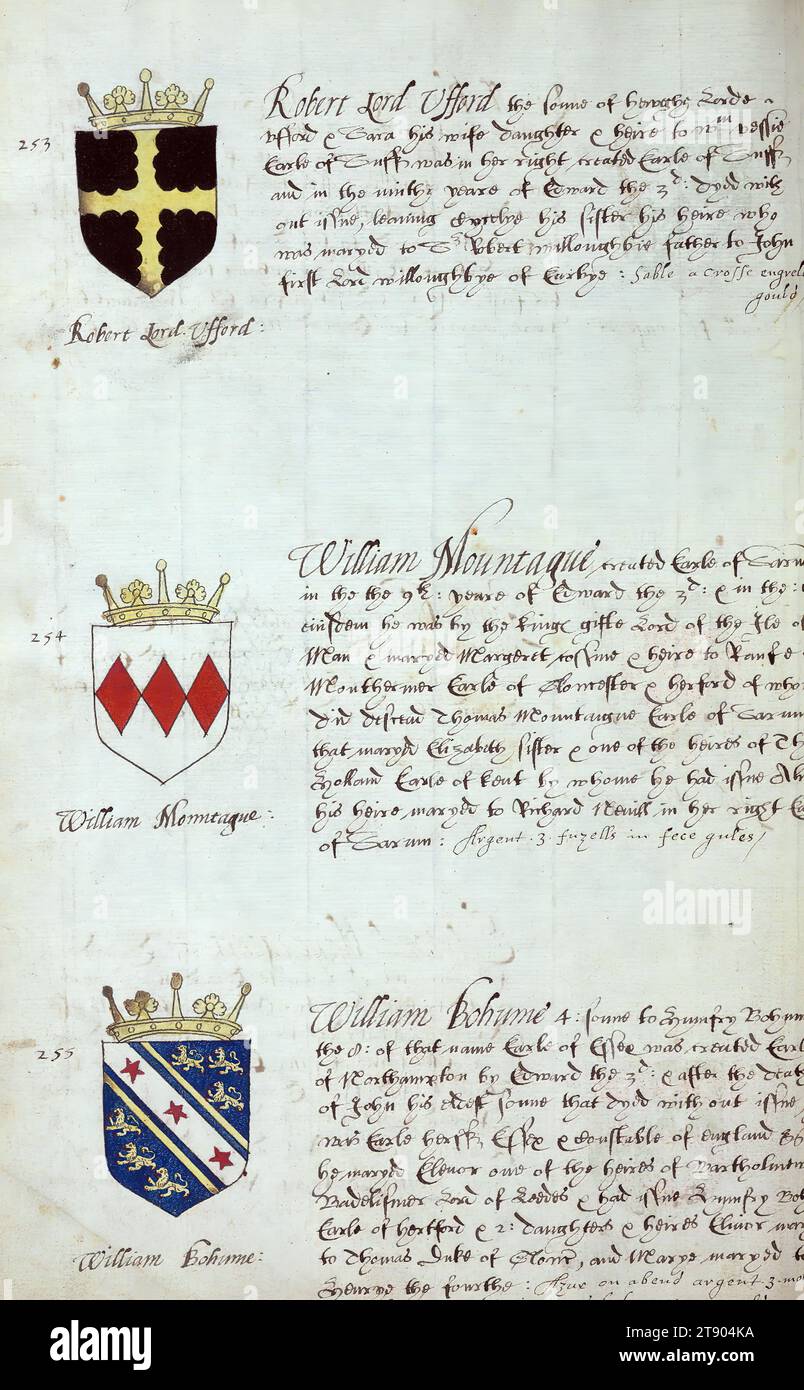 253
Robert Lord Ufford the sonne of Hewghe Lorde
Ufford & Sara his wife daughter & heire to Wm
Earle of Suff: was in her right created Earle of Suff:
and in the ninthe yeare of Edward the 3d: dyed with
out issue, leaving his sister his heire who
was maryed to Sr Robert Willoughbie father to John
first Lord Willoughbye of Earbye: Sable a Crosse engrel
gould
Robert Lord Ufford:
254
William Mountague, created Earle of Sarum
in the the 9th: yeare of Edward the 3d: & in the:
eiusdem he was by the kinges gifte Lord of the Ile of
Man & maryed Margeret cossine & heire to Raufe
Mounthermer Earle of Glocester & herford of
did descend Thomas Mountaigue Earle of Sarum
that maryed Elizabeth sister & one of the heires of Th
Holland Earle of Kent by whome he had issue
his heire maryed to Richard Nevill in her right Ea
of Sarum: Argent 3 fuzells in fece gules
William Monntague:
255
William Bohume 4: sonne to Humfry Bohum
the 8: of that name Earle of Essex was created Earl
of Northampton by Edward the 3d: & after the death
of John his eldest sonne that dyed with out issue
was Earle herff: Essex & Constable of England
he maryed Elenor one of the heires of Bartholmew
Badelismer Lord of Leedes & had issue Humfry Bo
Earle of hertford & 2: daughters & heires Elinor mar
to Thomas Duke of Glouc, and Marye maryed to
Henrye the fourthe: Azure on a bend argent 3 mo
William Bohume:
alamy
alamy
Image ID: 2T904KA
www.alamy.com